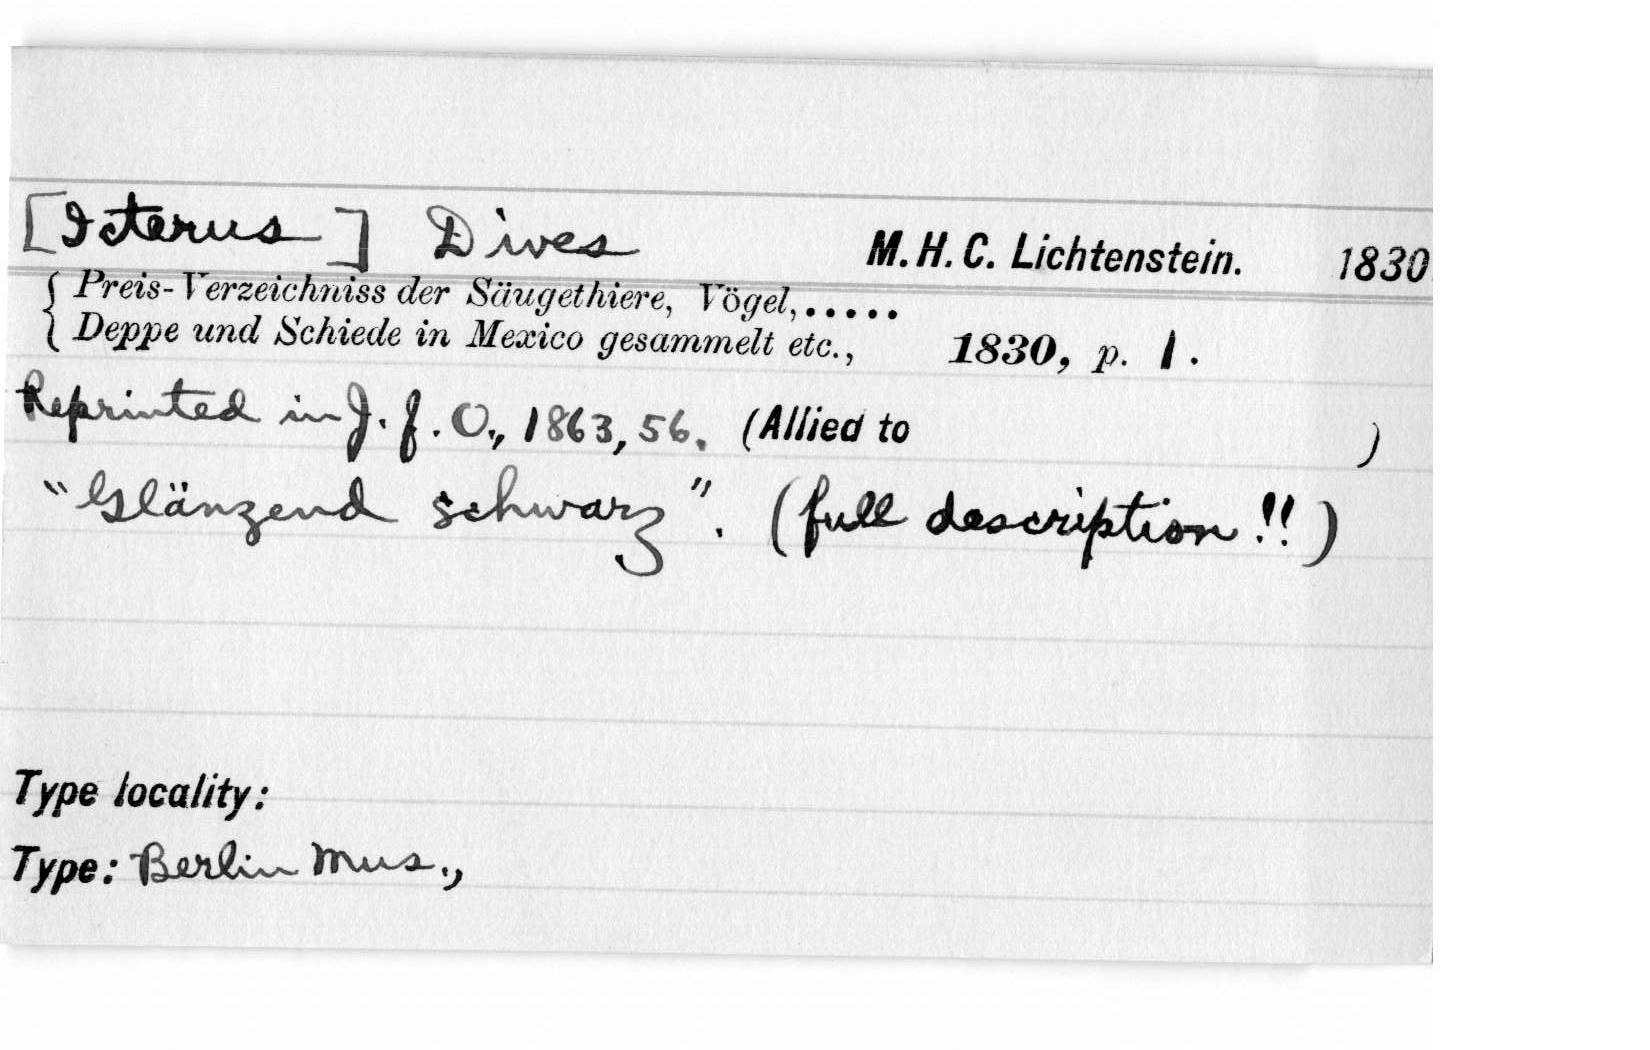 [Icterus] Dives M. H. C. Lichtenstein. 1830
{ Preis-Verzeichniss der Säugethiere, Vögel,.....
{ Deppe und Schiede in Mexico gesammelt etc., 1830, p. 1.
Reprinted in J. f. O., 1863, 56. (Allied to )
"Glänzend schwarz". (full description!!)
Type locality:
Type: Berlin Mus.,